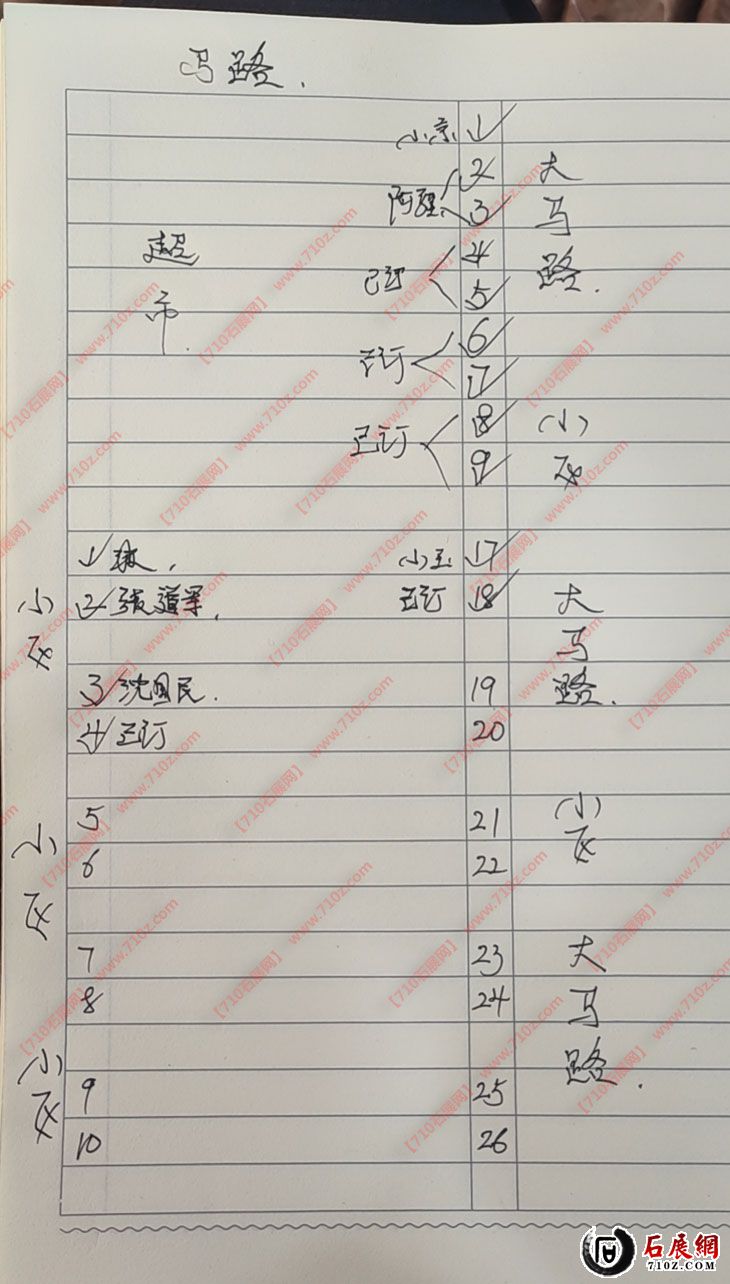 马路.
小京 1
阿强 2 大
3 马
超 已订 4 路.
市. 5
已订 6
7
已订 8 小
9 区
1 小王 17
小 2 张道军. 已订 18 大
区 马
3 沈国民. 19 路.
4 已订 20
小 5 21 小
区 6 22 区
7 23 大
8 24 马
小 路.
区 9 25
10 26
【710石展网】 www.710z.com
石展網
710z.COM